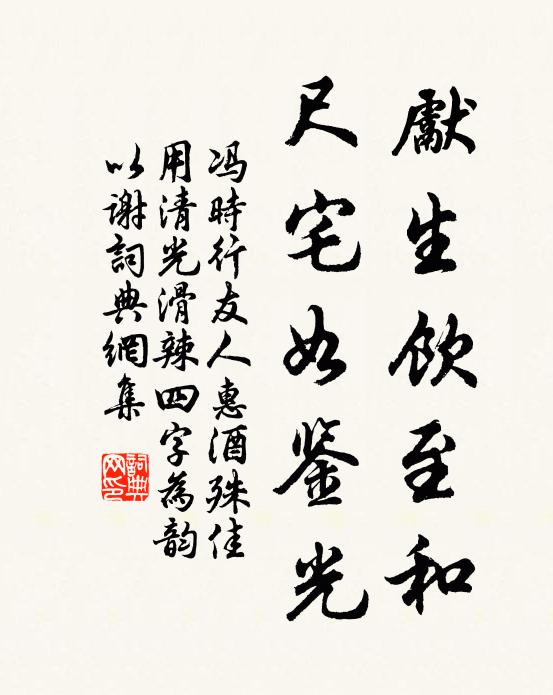 獻生飲至和
尺宅如鉴光
冯時行友人惠酒殊佳
用清光滑辣四字為韵
以谢詞典網集
詞典网印